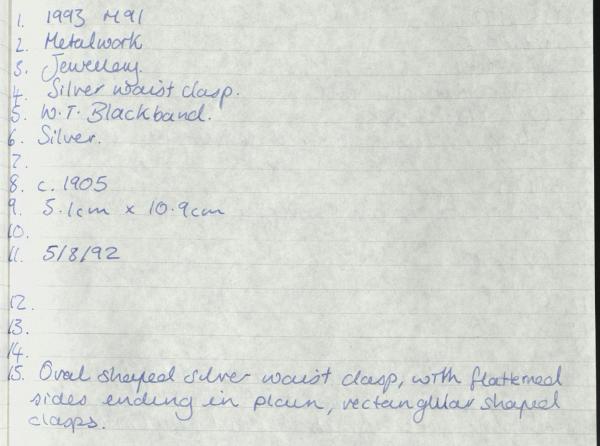 1. 1993 M91
2. Metalwork
3. Jewellery.
4. Silver waist clasp.
5. W.T. Blackband.
6. Silver.
7.
8. c. 1905
9. 5.1cm x 10.9cm
10.
11. 5/8/92
12.
13.
14.
15. Oval shaped silver waist clasp, with flattened
sides ending in plain, rectangular shaped
clasps.